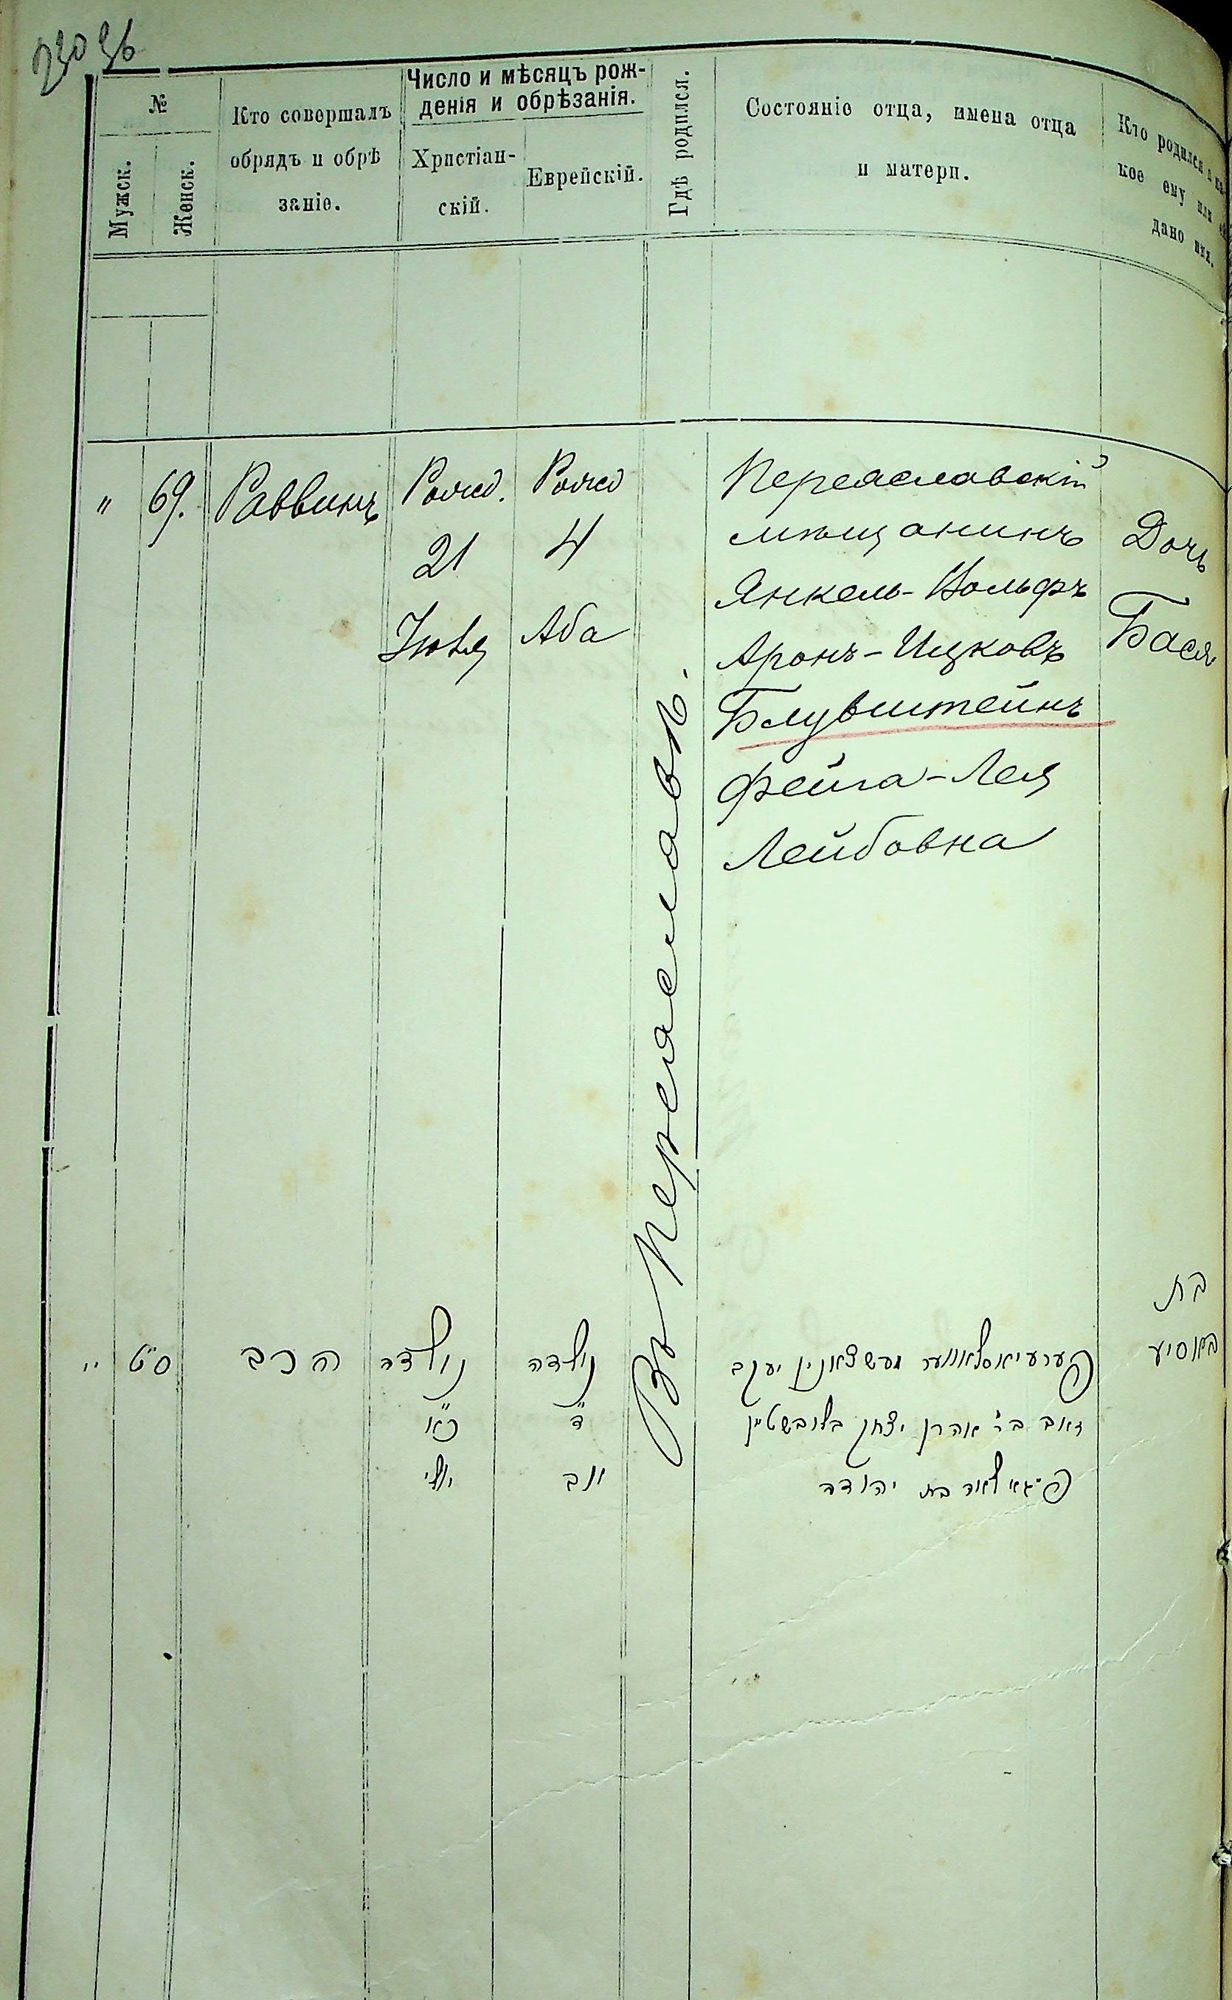 №
Мужск.
Женск.
Кто совершалъ
обрядъ и обрѣ
заніе.
Число и мѣсяцъ рож-
денія и обрѣзанія.
Христіан-
скій.
Еврейскій.
Гдѣ родился.
Состояніе отца, имена отца
и матери.
Кто родился и ка-
кое ему или ей
дано имя.
" 69. Раввинъ
Рожд.
21
Іюля
Рожд
4
Аба
Въ Переяславѣ.
Переяславскій
мѣщанинъ
Янкель-Вольфъ
Аронъ-Ицковъ
Блувштейнъ
Фейга-Лея
Лейбовна
Дочь
Бася
" ס"ט הרב
נולדה
כ"א
יולי
נולדה
ד"
פערעיאסלאווער מעשצאנין יעקב
זאב בר' אהרן יצחק בלובשטיין
פייגא לאה בת יהודה
בת
באסיע